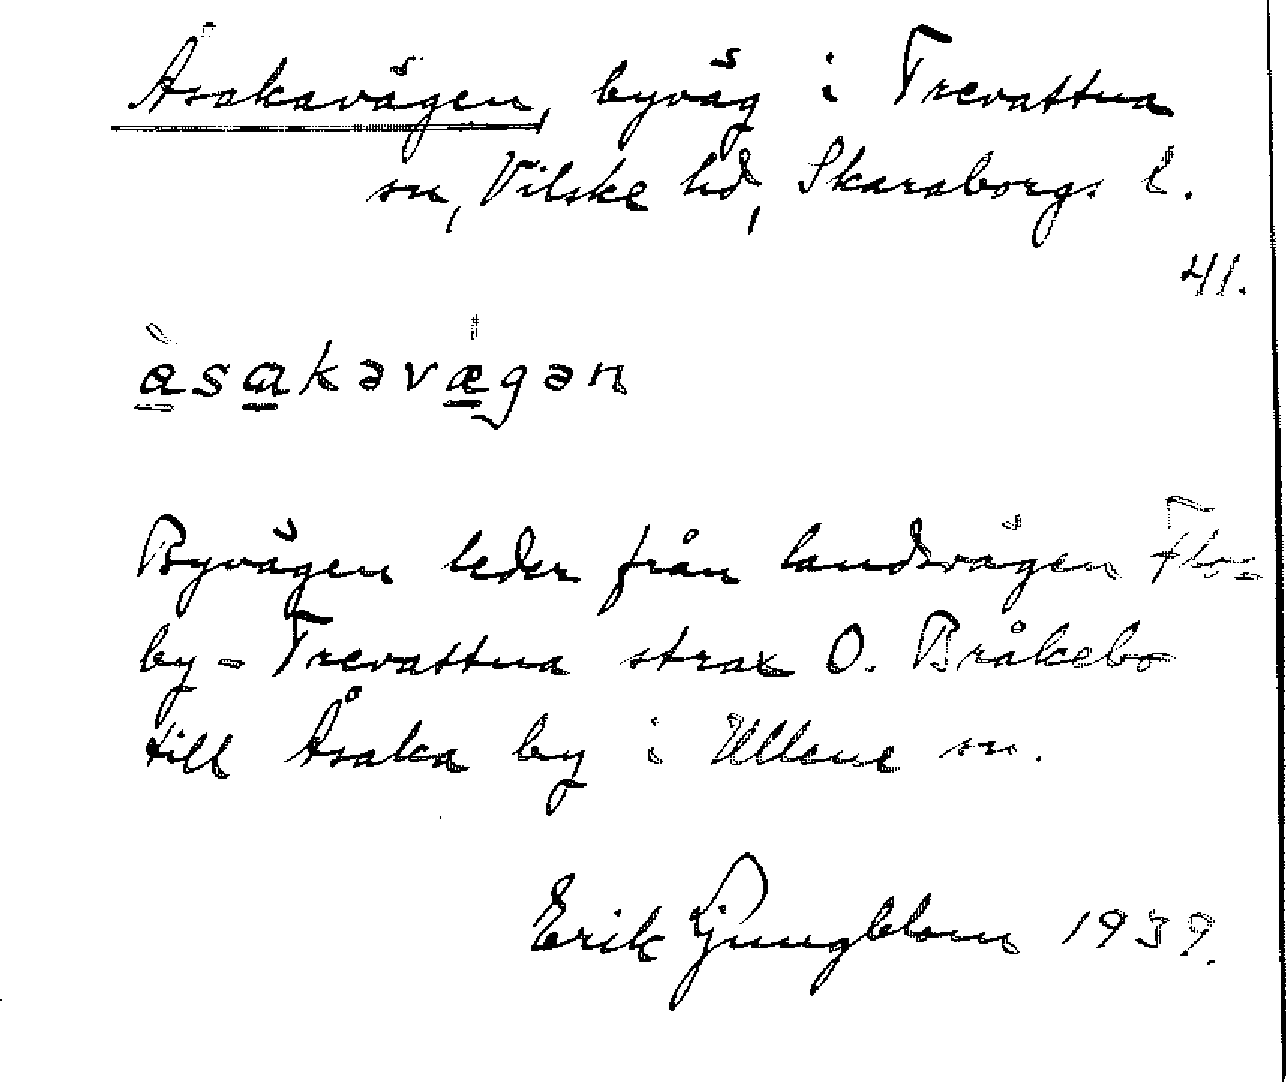 Åsakavägen, byväg i Trevattna
sn, Vilske hd, Skaraborgs l.
41.
àsakəvǽgən
Byvägen leder från landsvägen Flo-
by - Trevattna strax O. Bråkebo
till Åsaka by i Ullene sn.
Erik Ljungblom 1939.